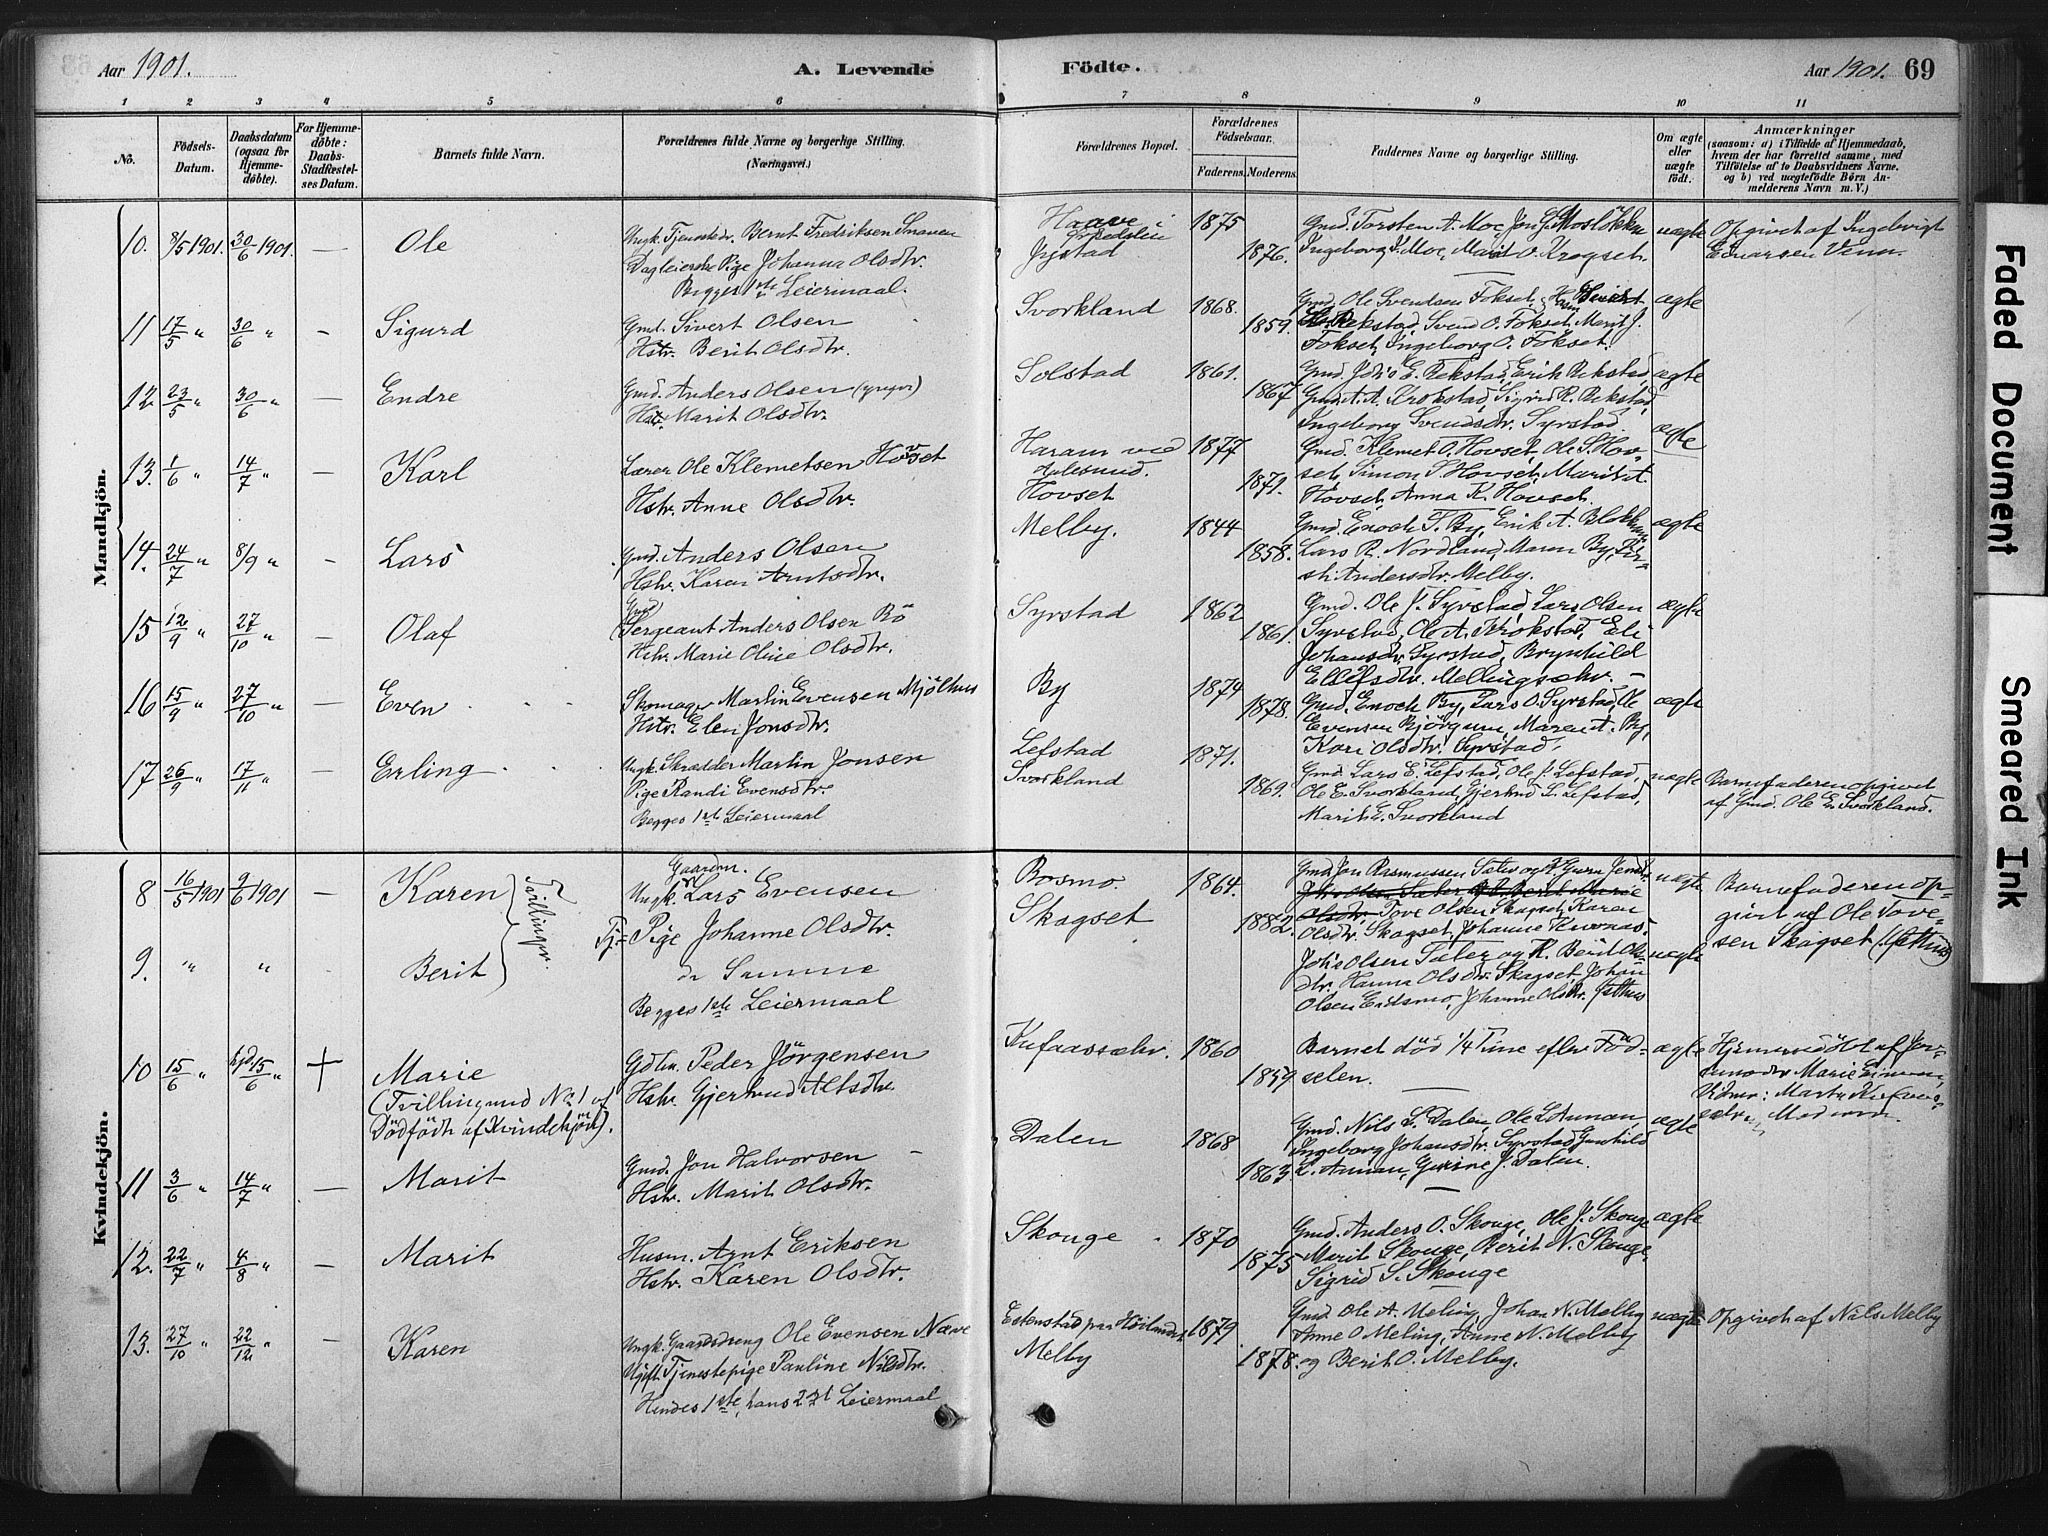 Aar 1901. A. Levende Fødte. Aar 1901. 69
1 2 3 4 5 6 7 8 9 10 11
No.
Födsels-Datum.
Daabsdatum (ogsaa for Hjemme-döbte).
For Hjemme-döbte: Daabs-Stadfæstel-ses Datum.
Barnets fulde Navn.
Forældrenes fulde Navne og borgerlige Stilling. (Næringsvei.)
Forældrenes Bopæl.
Forældrenes Födselsaar.
Faderens. Moderens.
Faddernes Navne og borgerlige Stilling.
Om ægte eller uægte födt.
Anmærkninger
(saasom: a) i Tilfælde af Hjemmedaab,
hvem der har forrettet samme, med
Tilföielse af to Daabsvidners Navne,
og b) ved uægtefödte Börn An-
melderens Navn m. V.)
Mandkjön.
10. 8/5 1901. 30/6 1901. — Ole
Ungk. Tjenestedr. Bernt Fredriksen
Dagleierske Pige Johanna Olsdtr.
Begges 1ste Leiermaal.
1875 1876.
Gmd. Torsten A. Moe, Jon
Ingeborg J. Moe, Marit O. Krogset.
uægte Opgivet af Ingebrigt
Venn.
11 17/5 " 30/6 " — Sigurd
Gmd. Sivert Olsen
Hstr. Berit Olsdtr.
Svorkland 1868. 1859.
Gmd. Ole Svendsen Fokset,
Rekstad, Svend O. Fokset, Marit J.
Fokset, Ingeborg O. Fokset.
ægte
12 23/5 " 30/6 " — Endre
Gmd. Anders Olsen (yngre)
Hstr. Marit Olsdtr.
Solstad 1861. 1867
Gmd. Johs E. Rekstad, Erik Rekstad,
Gmd. A. A. Krokstad, Sigrid R. Rekstad,
Ingeborg Svendsdtr. Syrstad.
ægte
13. 1/6 " 14/7 " — Karl
Lærer Ole Klemetsen Hovset
Hstr. Anne Olsdtr.
Haram ved
Aalesund.
Hovset
1877 1879.
Gmd. Klemet O. Hovset, Ole S. Hov-
set, Simon S. Hovset, Marit A.
Hovset, Anna K. Hovset.
ægte
14. 24/7 " 8/9 " — Lars
Gmd. Anders Olsen
Hstr. Karen Arntsdtr.
Melby. 1844 1858.
Gmd. Enoch T. By, Erik A.
Lars R. Nordland, Maren By, Kir-
sti Andersdtr. Melby.
ægte
15 12/9 " 27/10 " — Olaf
Gmd
Sergeant Anders Olsen Bö
Hstr. Marie Oline Olsdtr.
Syrstad 1862 1861.
Gmd. Ole J. Syrstad, Lars Olsen
Syrstad, Ole A. Krokstad, Eli
Johansdtr. Syrstad, Brynhild
Ellefsdtr. Mellingsæhr. —
ægte
16 15/9 " 27/10 " — Even
Skomager Martin Evensen Mjölhus
Hstr. Elen Jonsdtr.
By 1874 1878.
Gmd. Enoch By, Lars O. Syrstad, Ole
Evensen Björgum, Maren A. By,
Kari Olsdtr. Syrstad.
ægte
17 26/9 " 17/11 " — Erling
Ungk. Skrædder Martin Jonsen
Pige Randi Evensdtr
Begges 1ste Leiermaal
Lefstad
Svorkland
1871. 1869.
Gmd. Lars E. Lefstad, Ole J. Lefstad,
Ole E. Svorkland, Gjertrud L. Lefstad,
Marit E. Svorkland
uægte Barnefaderen opgivet
af Gmd. Ole E. Svorkland.
Kvindekjön.
8 16/5 1901 9/6 1901 — Karen
9. " " Berit
Tvillinger.
Gaardm.
Ungk. Lars Evensen
Tj.- Pige Johanne Olsdtr.
de Samme
Begges 1ste Leiermaal
Bosmo.
Skagset
1864. 1882.
Gmd. Jon Rasmussen Sæter og K. Guru
Olsdtr. Tove Olsen Skagset, Karen
Olsdtr. Skagset, Johanne
Johs Olsen Sæter og K. Berit Ols-
dtr. Hanna Olsdtr. Skagset, Johan
Olsen Eidsmo, Johanne Olsdtr.
uægte
uægte
Barnefaderen op-
givet af Ole Tove-
sen Skagset
10 15/6 " hjd. 15/6 " + Marie
(Tvilling med No. 1 af
Dödfödte af Kvindekjön).
Gdm. Peder Jörgensen
Hstr. Gjertrud
1860 1859
Barnet död 1/4 Time efter Föd-
selen.
ægte Hjemmedöbt af Jor-
demoder Marie
11 3/6 " 14/7 " — Marit
Gmd. Jon Halvorsen
Hstr. Marit Olsdtr.
Dalen 1868 1863
Gmd. Nils L. Dalen, Ole L. Aunan,
Ingeborg Johansdtr. Syrstad, Gunhild
L. Aunan, Gurine J. Dalen.
ægte
12. 22/7 " 4/8 " — Marit
Husm. Arnt Eriksen
Hstr. Karen Olsdtr.
Skouge 1870 1875
Gmd. Anders O. Skouge, Ole J. Skouge
Marit Skouge, Berit N. Skouge,
Sigrid S. Skouge
ægte
13. 27/10 " 22/12 " Karen
Ungk. Gaardsdreng Ole Evensen Næve
Ugift Tjenestepige Pauline Nilsdtr.
Hendes 1ste, hans 2det Leiermaal
Estenstad paa Höilandet
Melby
1879 1878.
Gmd. Ole A. Meling, Johan N. Melby
Anne O Meling, Anne N. Melby
og Berit O. Melby.
uægte Opgivet af Nils Melby
Faded Document
Smeared Ink